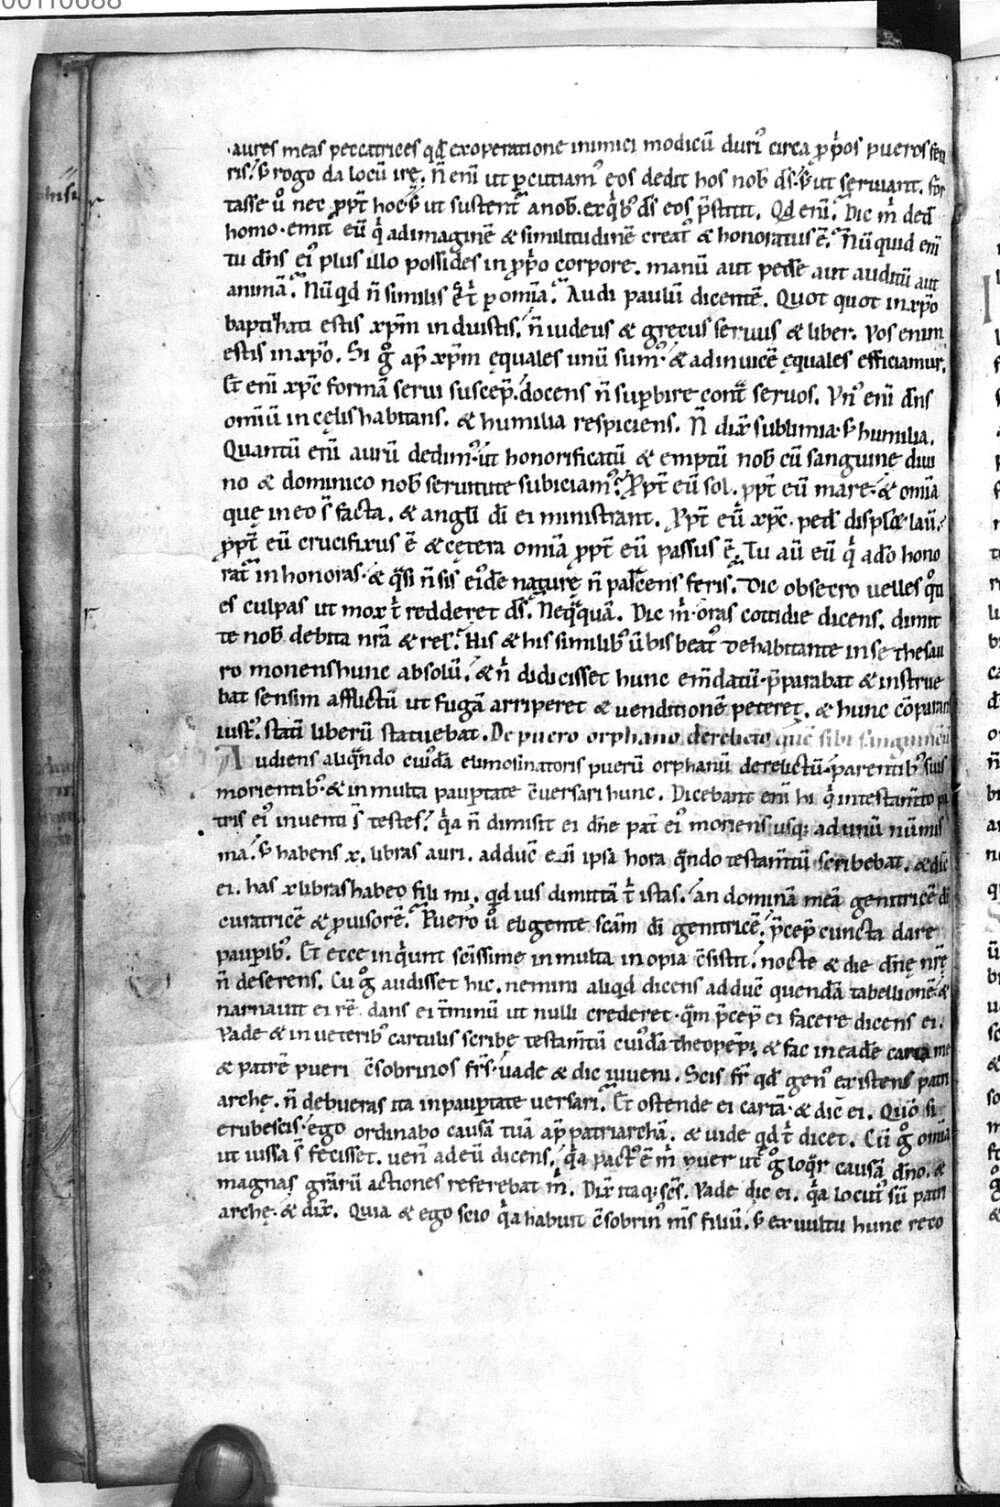 00110688
aures meas peccatrices qd̄ ex operatione inimici modicū duri᷒ circa p̱prios pueros feu
ris. s; rogo da locū irę. n̄ enī ut p̱cutiam᷒ eos dedit hos nob̄ ds̄. s; ut seruiant. for
tasse u̅ nec ppt̄ hoc s; ut sustent̄ a nob̄. ex q̇b᷒ ds̄ eos p̄stitit. Qd enī. Dic m̄ ded̄
homo. emit eū q̇ ad imaginē & similitudinē creat᷒ & honoratus ē. Nūquid enī
tu dn̄s ei᷒ plus illo possides in p̱prio corpore. manū aut pedē aut auditū aut
animā. Nūqd n̄ similis ē t̄ p̱ omīa. Audi paulū dicentē. Quot quot in xp̄o
baptizati estis xp̄m induistis. n̄ iudeus & grecus seruus & liber. Vos enim
estis in xp̄o. Si g̊ ap̄ xp̄m ęquales unū sum᷒. & adinuicē ęquales efficiamur.
Et enī xp̄c formā serui suscep̄. docens n̄ sup̱bire cont̄ seruos. Vn᷒ enī dn̄s
omiū in cęlis habitans. & humilia respiciens. N̄ dix̄ sublimia. s; humilia.
Quantū enī aurū dedim᷒. ut honorificatū & emptū nob̄ cū sanguine diui
no & dominico nob̄ seruitute subiciam᷒. Ppt̄ eū sol. ppt̄ eū mare. & omīa
quę in eo s̄ facta. & angli dī ei ministrant. Ppt̄ eū xp̄c. ped̄ displo᷒ lau.
ppt̄ eū crucifixus ē & cętera omīa ppt̄ eū passus ē. Tu aū eū q̇ a dō hono
rat᷒ inhonoras. & q̄si n̄ sis ei᷒dē naturę n̄ parcens feris. Dic obsecro uelles qti
es culpas ut mox t̄ redderet ds̄. Neq̄quā. Dic m̄. oras cottidie dicens. dimit
te nob̄ debita nr̄a & rel̄. His & his similib᷒ ūbis beat᷒ de habitante in se thesau
ro monens hunc absoluī. & n̄ didicisset hunc em̄datū. p̄parabat & instrue
bat sensim afflictū ut fugā arriperet & uenditionē peteret. & hunc cōparans
iust᷒. statī liberū statuebat. De puero orphano derelicto quē sibi sanguineū
Audiens aliqn̄do cui᷒dā elimosinatoris puerū orphanū derelictū. parentib᷒ suis
morientib᷒. & in multa paup̱tate c̄uersari hunc. Dicebant enī hi q̇ in testam̄to pa
tris ei᷒ inuenti s̄ testes. q̇a n̄ dimisit ei dn̄e pat̄ ei᷒ moriens usq; ad unū nūmis
ma. s; habens .x. libras auri. adduc̄ eū ipsa hora qn̄do testam̄tū scribebat. & dic̄
ei. has x libras habeo fili mi. qd uis dimittā t̄ istas. an dominā meā genitricē dī
curatricē & p̱uisorē. Puero u̅ eligente sc̄am dī genitricē. p̄cep̄ cuncta dare
paup̱ib᷒. Et ecce inq̇unt sc̄issime in multa inopia c̄sistit. nocte & die dn̄ę nr̄ę
n̄ deserens. Cū g̊ audisset hic. nemini aliqd dicens adduc̄ quendā tabellionē. &
narrauit ei rē. dans ei t̄minū ut nulli crederet. q̄m p̄cep̄ ei facere dicens ei.
Vade & in ueterib᷒ cartulis scribe testam̄tū cui᷒dā theopēpi. & fac in eadē carta me
& patrē pueri c̄sobrinos frs̄. uade & dic iuueni. Scis fr̄ qd gen᷒ existens patri
archę. n̄ debueras ita in paup̱tate uersari. Et ostende ei cartā. & dic ei. Qūo si
erubescis. ego ordinabo causā tuā ap̄ patriarchā. & uide qd t̄ dicet. Cū g̊ omīa
ut iussa s̄ fecisset. uen̄ ad eū dicens. q̇a pact᷒ ē m̄ puer ut g̊ loqr̄ causā dn̄o. &
magnas gr̄arū actiones referebat m̄. Dix̄ itaq; sc̄s. Vade dic ei. q̇a locut᷒ sū patri
archę. & dix̄. Quia & ego scio q̇a habuit c̄sobrin᷒ m̄s filiū. s; ex uultu hunc reco